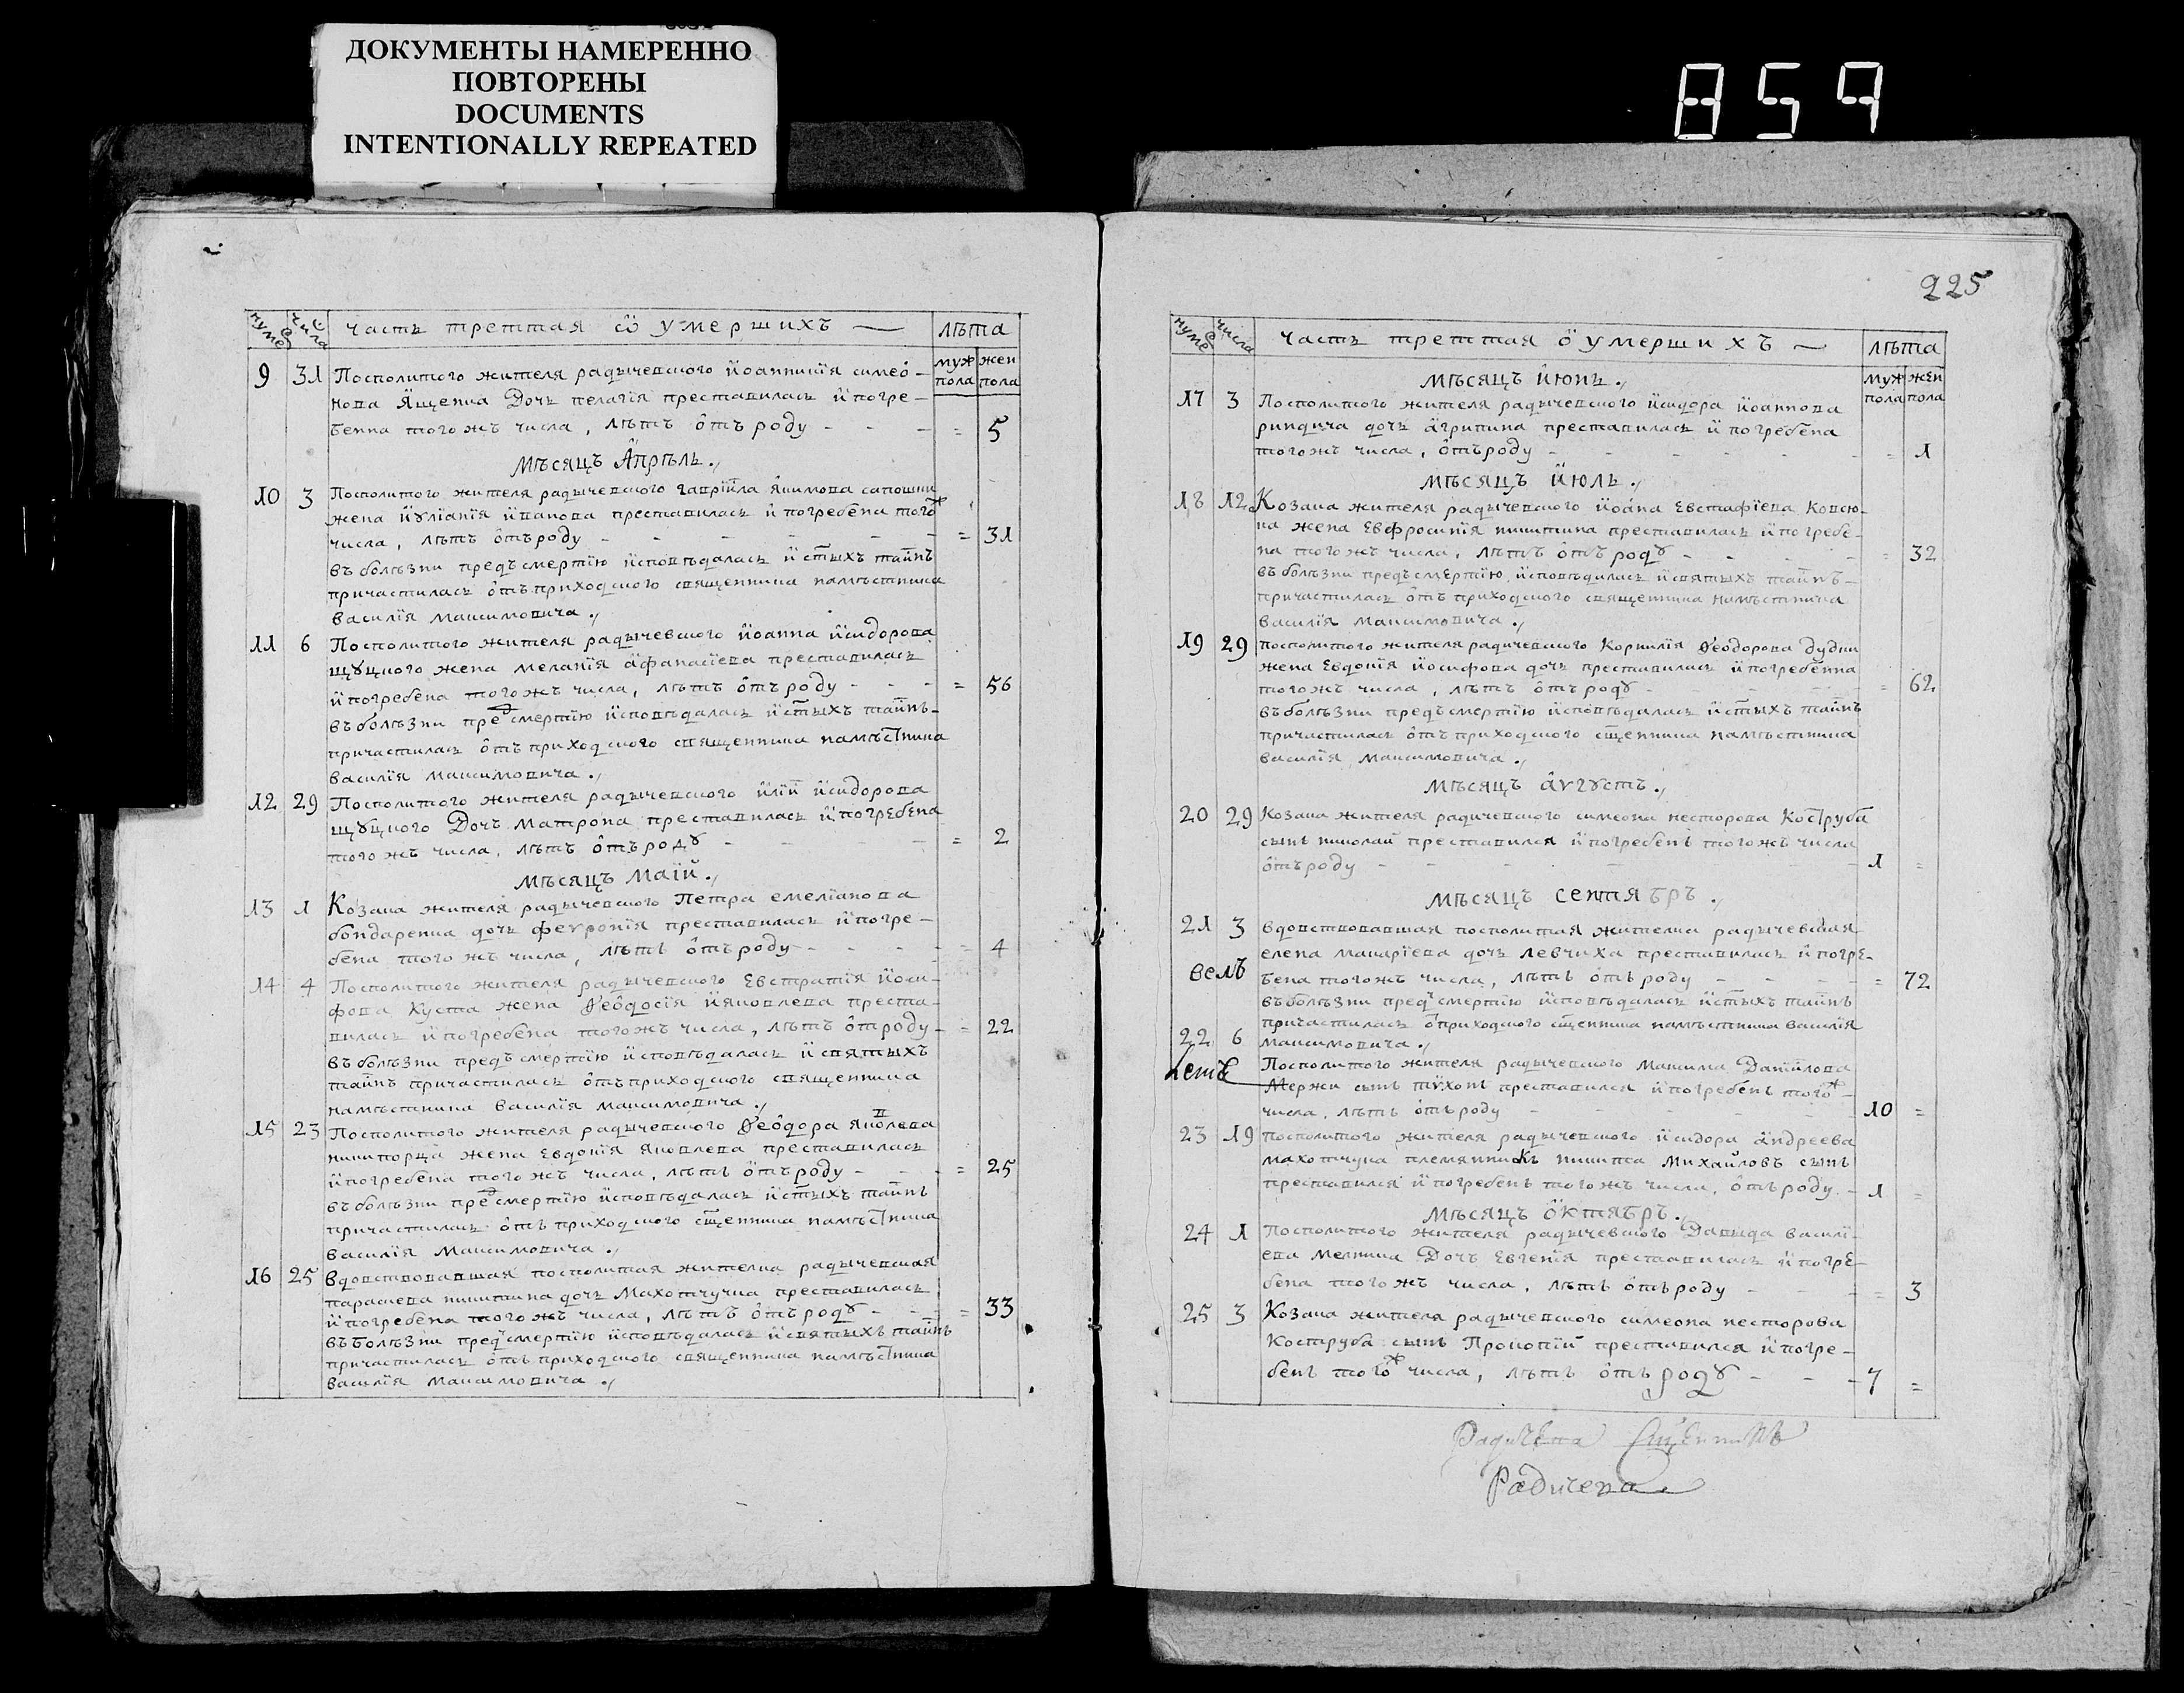 ДОКУМЕНТЫ НАМЕРЕННО
ПОВТОРЕНЫ
DOCUMENTS
INTENTIONALLY REPEATED
859
нумеръ числа часть треттая ѿ умершихъ — лѣта
муж пола жен пола
9 31 Посполитого жителя радычевского іоанникія симео-
нова Ященка Дочь пелагія преставилась и погре-
бенна того жъ числа, лѣтъ отъ роду - - - = 5
Мѣсяцъ Апрѣль.,
10 3 Посполитого жителя радычевского гавріила якимова сапошни
жена іуліанія иванова преставилась и погребена того ж
числа, лѣтъ отъ роду - - - - - = 31
въ болѣзни предъ смертію исповѣдалась и стыхъ тайнъ
причастилась отъ приходского священника намѣстника
василія максимовича .,
11 6 Посполитого жителя радычевского іоанна исидорова
щуцкого жена меланія афанасіева преставилась
и погребена того жъ числа, лѣтъ отъ роду - - - = 56
въ болѣзни пред смертію исповѣдалась и стыхъ тайнъ-
причастилась отъ приходского священника намѣстника
василія максимовича .,
12 29 Посполитого жителя радычевского иліи исидорова
щуцкого Дочъ матрона преставилась и погребена
того жъ числа, лѣтъ отъ роду - - - = 2
мѣсяцъ маій .,
13 1 Козака жителя радычевского Петра емеліанова
бондаренка дочь феѵронія преставилась и погре-
бена того жъ числа, лѣтъ отъ роду - - - - = 4
14 4 Посполитого жителя радычевского Евстратія іоси-
фова Куста жена Ѳеодосія ияковлева преста-
вилась и погребена того жъ числа, лѣтъ от роду - = 22
въ болѣзни предъ смертію исповѣдалась и святыхъ
тайнъ причастилась отъ приходского священника
намѣстника василія максимовича .,
15 23 Посполитого жителя радычевского Ѳеодора яковлева
жена Евдокія яковлева преставилась
и погребена того жъ числа, лѣтъ отъ роду - - - = 25
въ болѣзни пред смертію исповѣдалась и стыхъ тайнъ
причастилась отъ приходского сщенника намѣстника
василія максимовича .,
16 25 вдовствовавшая посполитая жителка радычевская
параскева никитина дочь Махотчучка преставилась
и погребена того жъ числа, лѣтъ отъ роду - - - = 33
въ болѣзни предъ смертію исповѣдалась и святыхъ тайнъ
причастилась отъ приходского священника намѣстника
василія максимовича .,
225
нумеръ числа часть треттая о умершихъ — лѣта
муж пола жен пола
мѣсяцъ іюнь .,
17 3 Посполитого жителя радычевского исидора іоаннова
риндича дочь агрипина преставилась и погребена
того жъ числа, отъ роду - - - - - = 1
мѣсяцъ іюль .,
18 12 Козака жителя радычевского іоана Евстафіева Ковсю-
ка жена Евфросинія никитина преставилась и погребе-
на того жъ числа, лѣтъ отъ роду - - - - = 32
въ болѣзни предъ смертію исповѣдалась и святыхъ тайнъ-
причастилась отъ приходского священника намѣстника
василія максимовича .,
19 29 посполитого жителя радичевского Корнилія Ѳеодорова дудки
жена Евдокія іосифова дочь преставилась и погребенна
того жъ числа, лѣтъ отъ роду - - - = 62
въ болѣзни предъ смертію исповѣдалась и стыхъ тайнъ
причастилась отъ приходского сщенника намѣстника
василія максимовича .,
мѣсяцъ аѵгустъ .,
20 29 Козака жителя радичевского симеона несторова Коструба
сынъ николай преставился и погребенъ того жъ числа
отъ роду - - - - 1 =
мѣсяцъ септябръ .,
21 3 вдовствовавшая посполитая жителка радычевская
елена макаріева дочь левчиха преставилась и погре-
бена того жъ числа, лѣтъ отъ роду - - - - = 72
въ болѣзни предъ смертію исповѣдалась и стыхъ тайнъ
причастилась от приходского сщенника намѣстника василія
максимовича .,
22 6 Посполитого жителя радычевского максима Даніилова
Мержи сынъ тихонъ преставился и погребенъ того ж
числа, лѣтъ отъ роду - - - - 10 =
23 19 Посполитого жителя радычевского исидора андреева
махотчука племянникъ никита михайловъ сынъ
преставился и погребенъ того жъ числа, отъ роду - 1 =
мѣсяцъ октябръ .,
24 1 Посполитого жителя радычевского Давыда васили-
ева мелника Дочъ Евгенія преставилась и погре-
бена того жъ числа, лѣтъ отъ роду - - - = 3
25 3 Козака жителя радычевского симеона несторова
Коструба сынъ Прокопій преставился и погре-
бенъ того ж числа, лѣтъ отъ роду - - - 7 =
Радичева